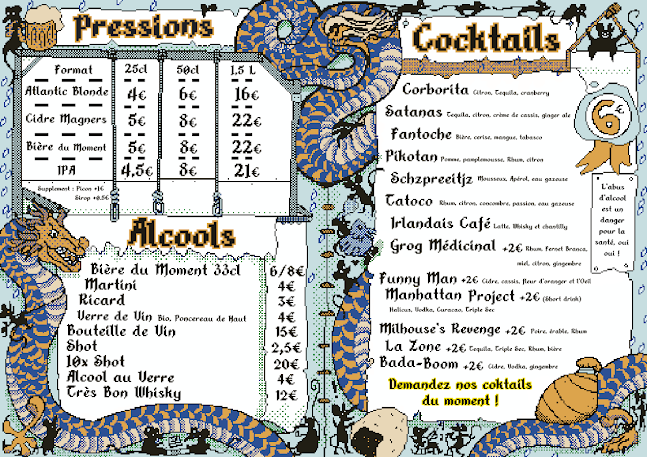 Pressions
Format 25cl 50cl 1,5 L
Atlantic Blonde 4€ 6€ 16€
Cidre Magners 5€ 8€ 22€
Bière du Moment 5€ 8€ 22€
IPA 4,5€ 8€ 21€
Supplement : Picon +1€
Sirop +0.5€
Alcools
Bière du Moment 33cl 6/8€
Martini 4€
Ricard 3€
Verre de Vin Bio, Poncereau de Haut 4€
Bouteille de Vin 15€
Shot 2,5€
10x Shot 20€
Alcool au Verre 4€
Très Bon Whisky 12€
Cocktails
6€
Corborita Citron, Tequila, cranberry
Satanas Tequila, citron, crème de cassis, ginger ale
Fantoche Bière, cerise, mangue, tabasco
Pikotan Pomme, pamplemousse, Rhum, citron
Schzpreeitjz Mousseux, Apérol, eau gazeuse
Tatoco Rhum, citron, concombre, passion, eau gazeuse
Irlandais Café Latte, Whisky et chantilly
Grog Médicinal +2€ Rhum, Fernet Branca,
miel, citron, gingembre
Funny Man +2€ Cidre, cassis, fleur d'oranger et l'Oeil
Manhattan Project +2€ (Short drink)
Italicus, Vodka, Curacao, Triple Sec
Milhouse's Revenge +2€ Poire, érable, Rhum
La Zone +2€ Tequila, Triple Sec, Rhum, bière
Bada-Boom +2€ Cidre, Vodka, gingembre
Demandez nos coktails
du moment !
L'abus
d'alcool
est un
danger
pour la
santé, oui
oui !